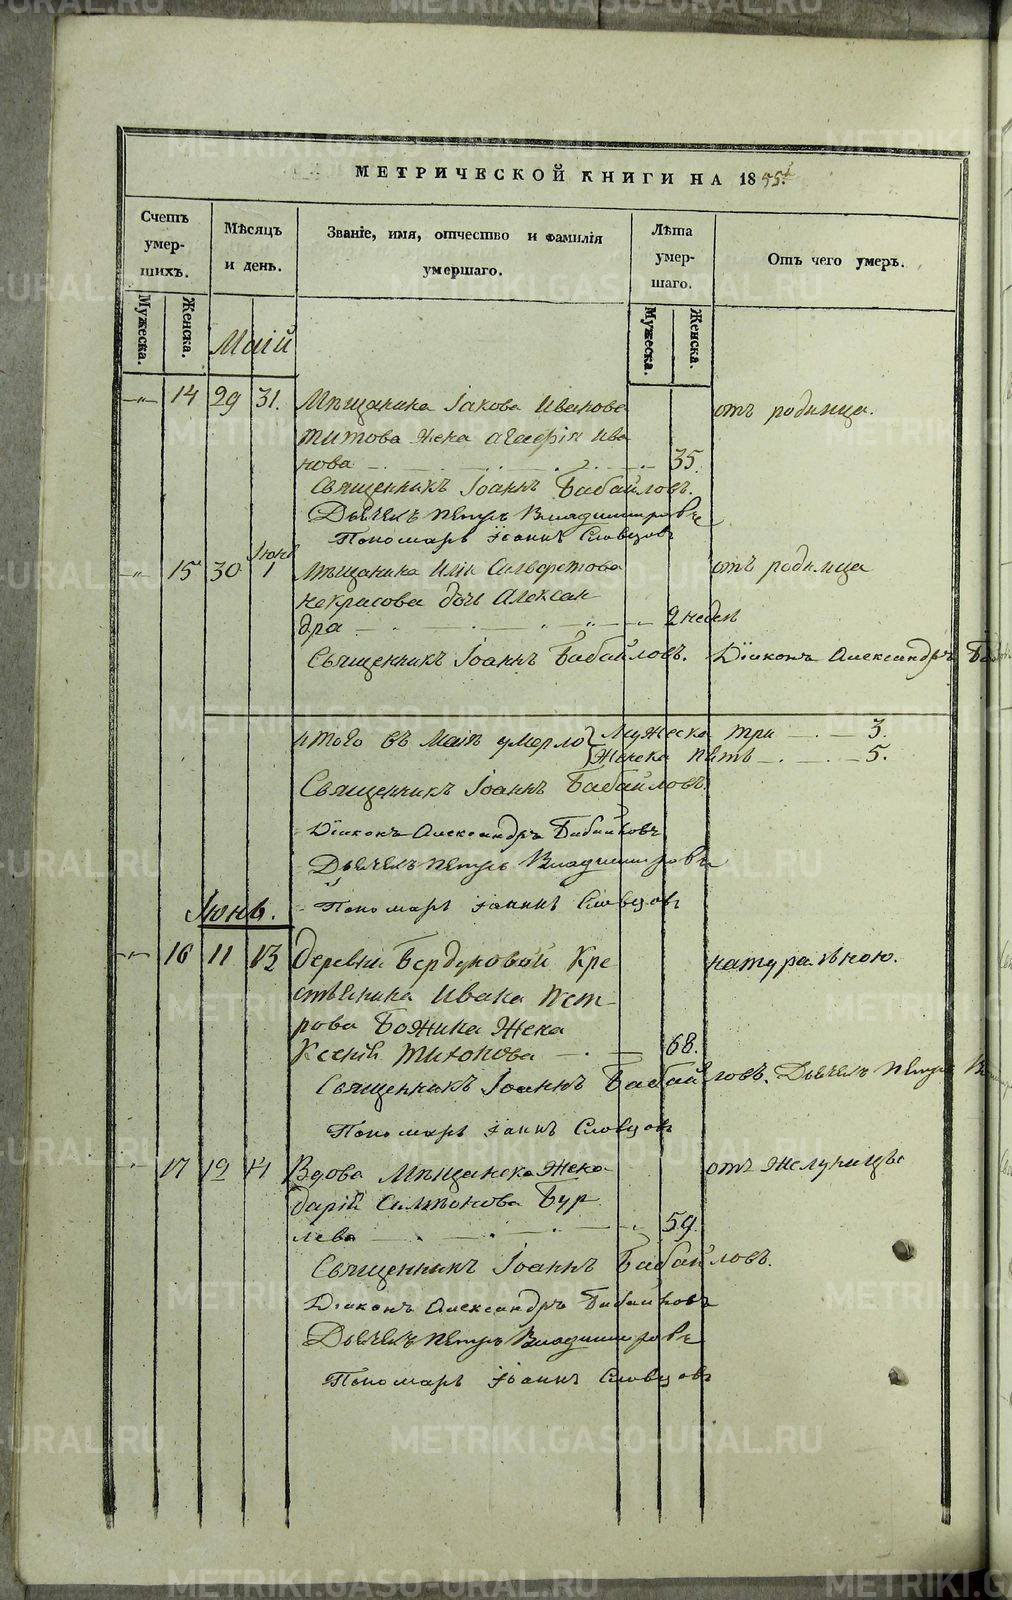 МЕТРИЧЕСКОЙ КНИГИ НА 1845г
Счетъ умер-шихъ.
Мужеска.
Женска.
Мѣсяцъ и день.
Званіе, имя, отчество и фамилія умершаго.
Лѣта умер-шаго.
Мужеска.
Женска.
Отъ чего умеръ.
Маій
14 29 31. Мѣщанина Іакова Иванова отъ родимца.
Титова жена Агафія Ива
нова 35.
Священникъ Іоаннъ Бабайловъ.
Дьячекъ Петръ Владимировъ
Пономарь Іоаннъ Словцовъ
Іюнь
15 30 1 Мѣщанина Иліи Сильверстова отъ родимца
Некрасова дочь Алексан
дра 2 недел
Священникъ Іоаннъ Бабайловъ. Діаконъ Александръ
итого въ Маіѣ умерло Мужеска три 3.
Женска пять 5.
Священникъ Іоаннъ Бабайловъ.
Діаконъ Александръ Бабайловъ
Дьячекъ Петръ Владимировъ
Пономарь Іоаннъ Словцовъ
Іюнь.
16 11 13 Деревни Бердюковой Кре натуральною.
стьянина Ивана Пет-
рова Божина жена
Ксенія Тихонова 68.
Священникъ Іоаннъ Бабайловъ. Дьячекъ Петръ
Пономарь Іоаннъ Словцовъ
17 12 14 Вдова Мѣщанска жена
Дарія Симеонова Бур
лева 59.
Священникъ Іоаннъ Бабайловъ.
Діаконъ Александръ Бабайловъ
Дьячекъ Петръ Владимировъ
Пономарь Іоаннъ Словцовъ
METRIKI.GASO-URAL.RU